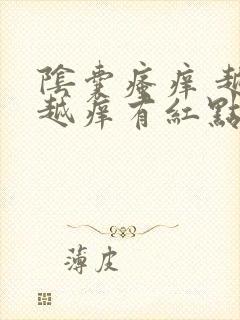 陰囊瘙痒越
越痒有紅點
薄皮